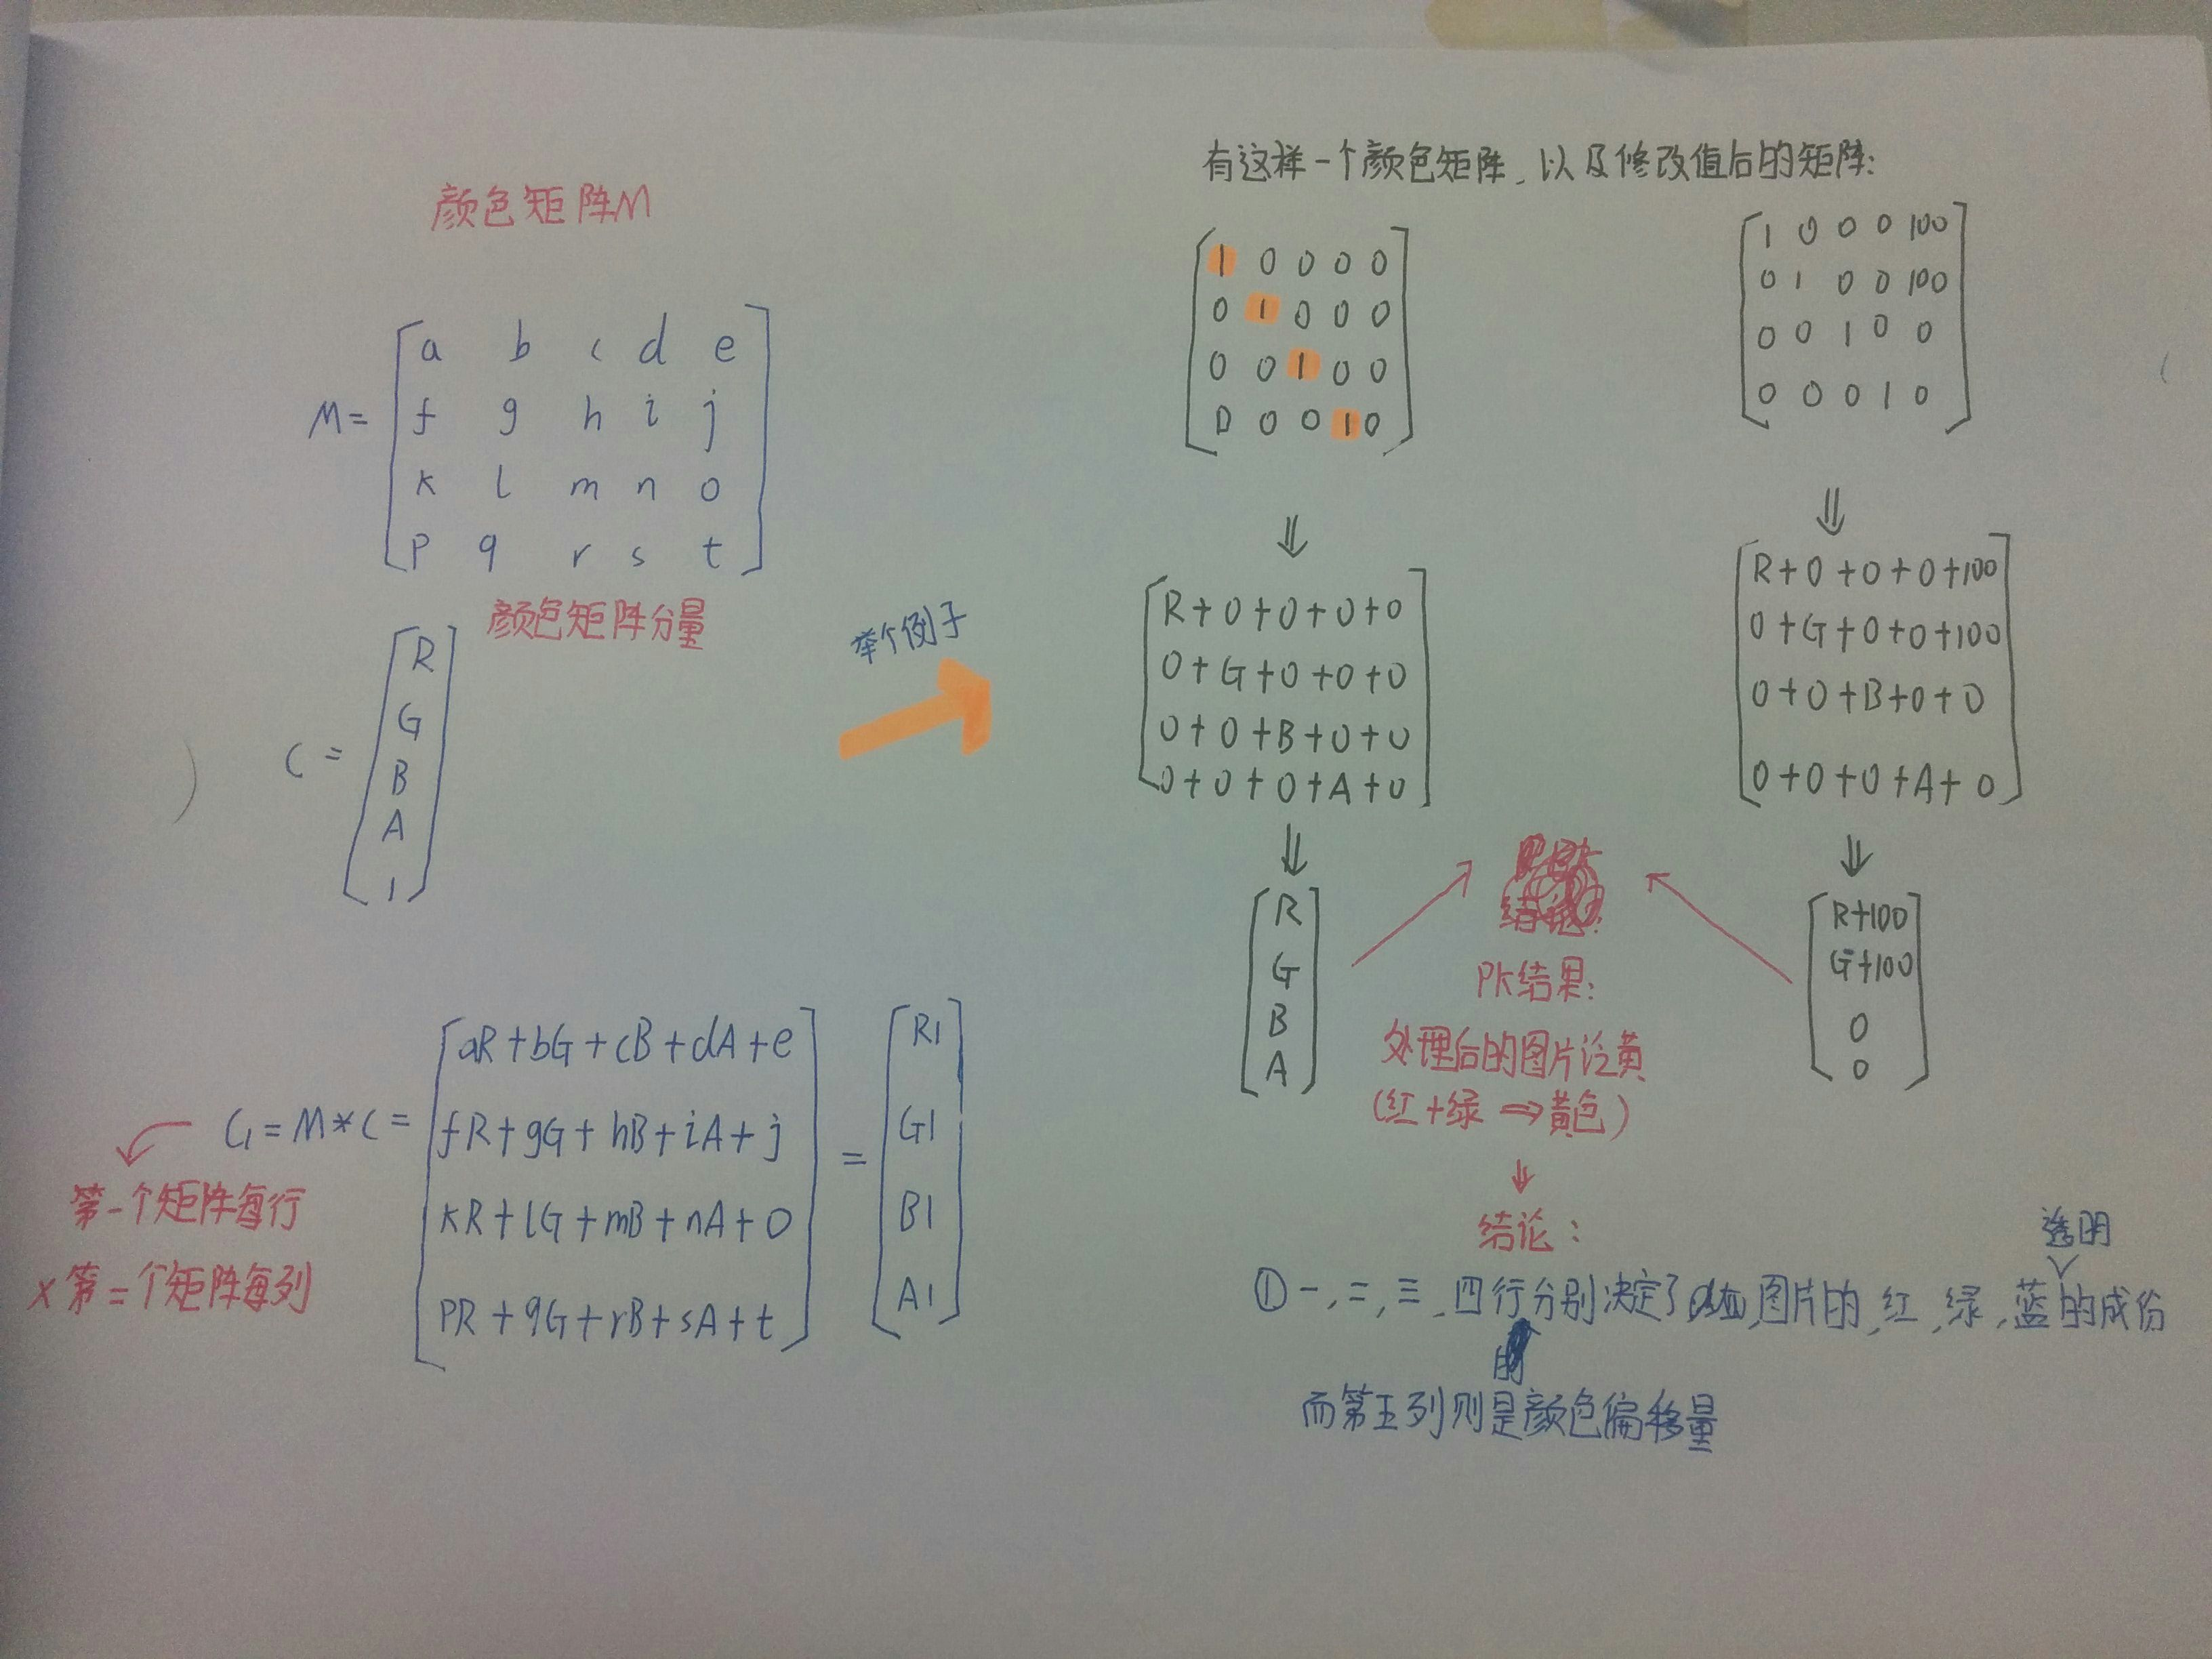 颜色矩阵M
M=
a b c d e
f g h i j
k l m n o
p q r s t
颜色矩阵分量
C =
R
G
B
A
1
C1 = M * C =
aR+bG+cB+dA+e
fR+gG+hB+iA+j
kR+lG+mB+nA+O
PR+qG+rB+sA+t
=
R1
G1
B1
A1
第一个矩阵每行
x 第二个矩阵每列
举个例子
有这样一个颜色矩阵,以及修改值后的矩阵:
1 0 0 0 0
0 1 0 0 0
0 0 1 0 0
0 0 0 1 0
⇓
R+0+0+0+0
0+G+0+0+0
0+0+B+0+0
0+0+0+A+0
⇓
R
G
B
A
1 0 0 0 100
0 1 0 0 100
0 0 1 0 0
0 0 0 1 0
⇓
R+0+0+0+100
0+G+0+0+100
0+0+B+0+0
0+0+0+A+0
⇓
R+100
G+100
0
0
PK结果:
处理后的图片泛黄
(红+绿 ⇒ 黄色)
结论:
透明
①一,二,三,四行分别决定了图片的,红,绿,蓝的成份
的
而第五列则是颜色偏移量